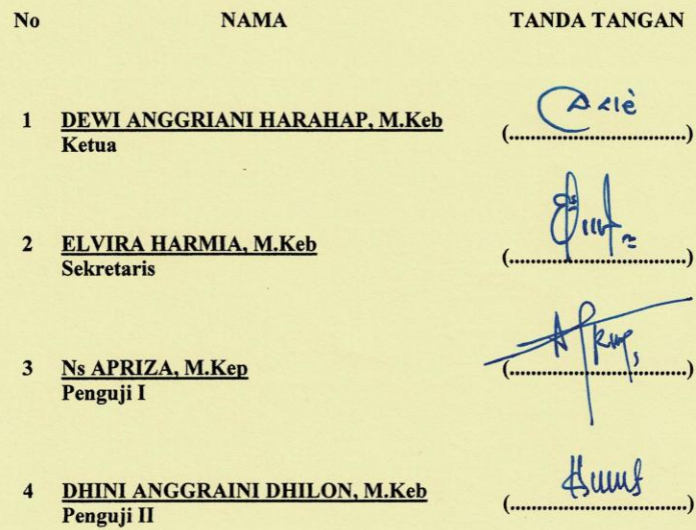 No NAMA TANDA TANGAN
1 DEWI ANGGRIANI HARAHAP, M.Keb (..............................)
Ketua
2 ELVIRA HARMIA, M.Keb (..............................)
Sekretaris
3 Ns APRIZA, M.Kep (..............................)
Penguji I
4 DHINI ANGGRAINI DHILON, M.Keb (..............................)
Penguji II